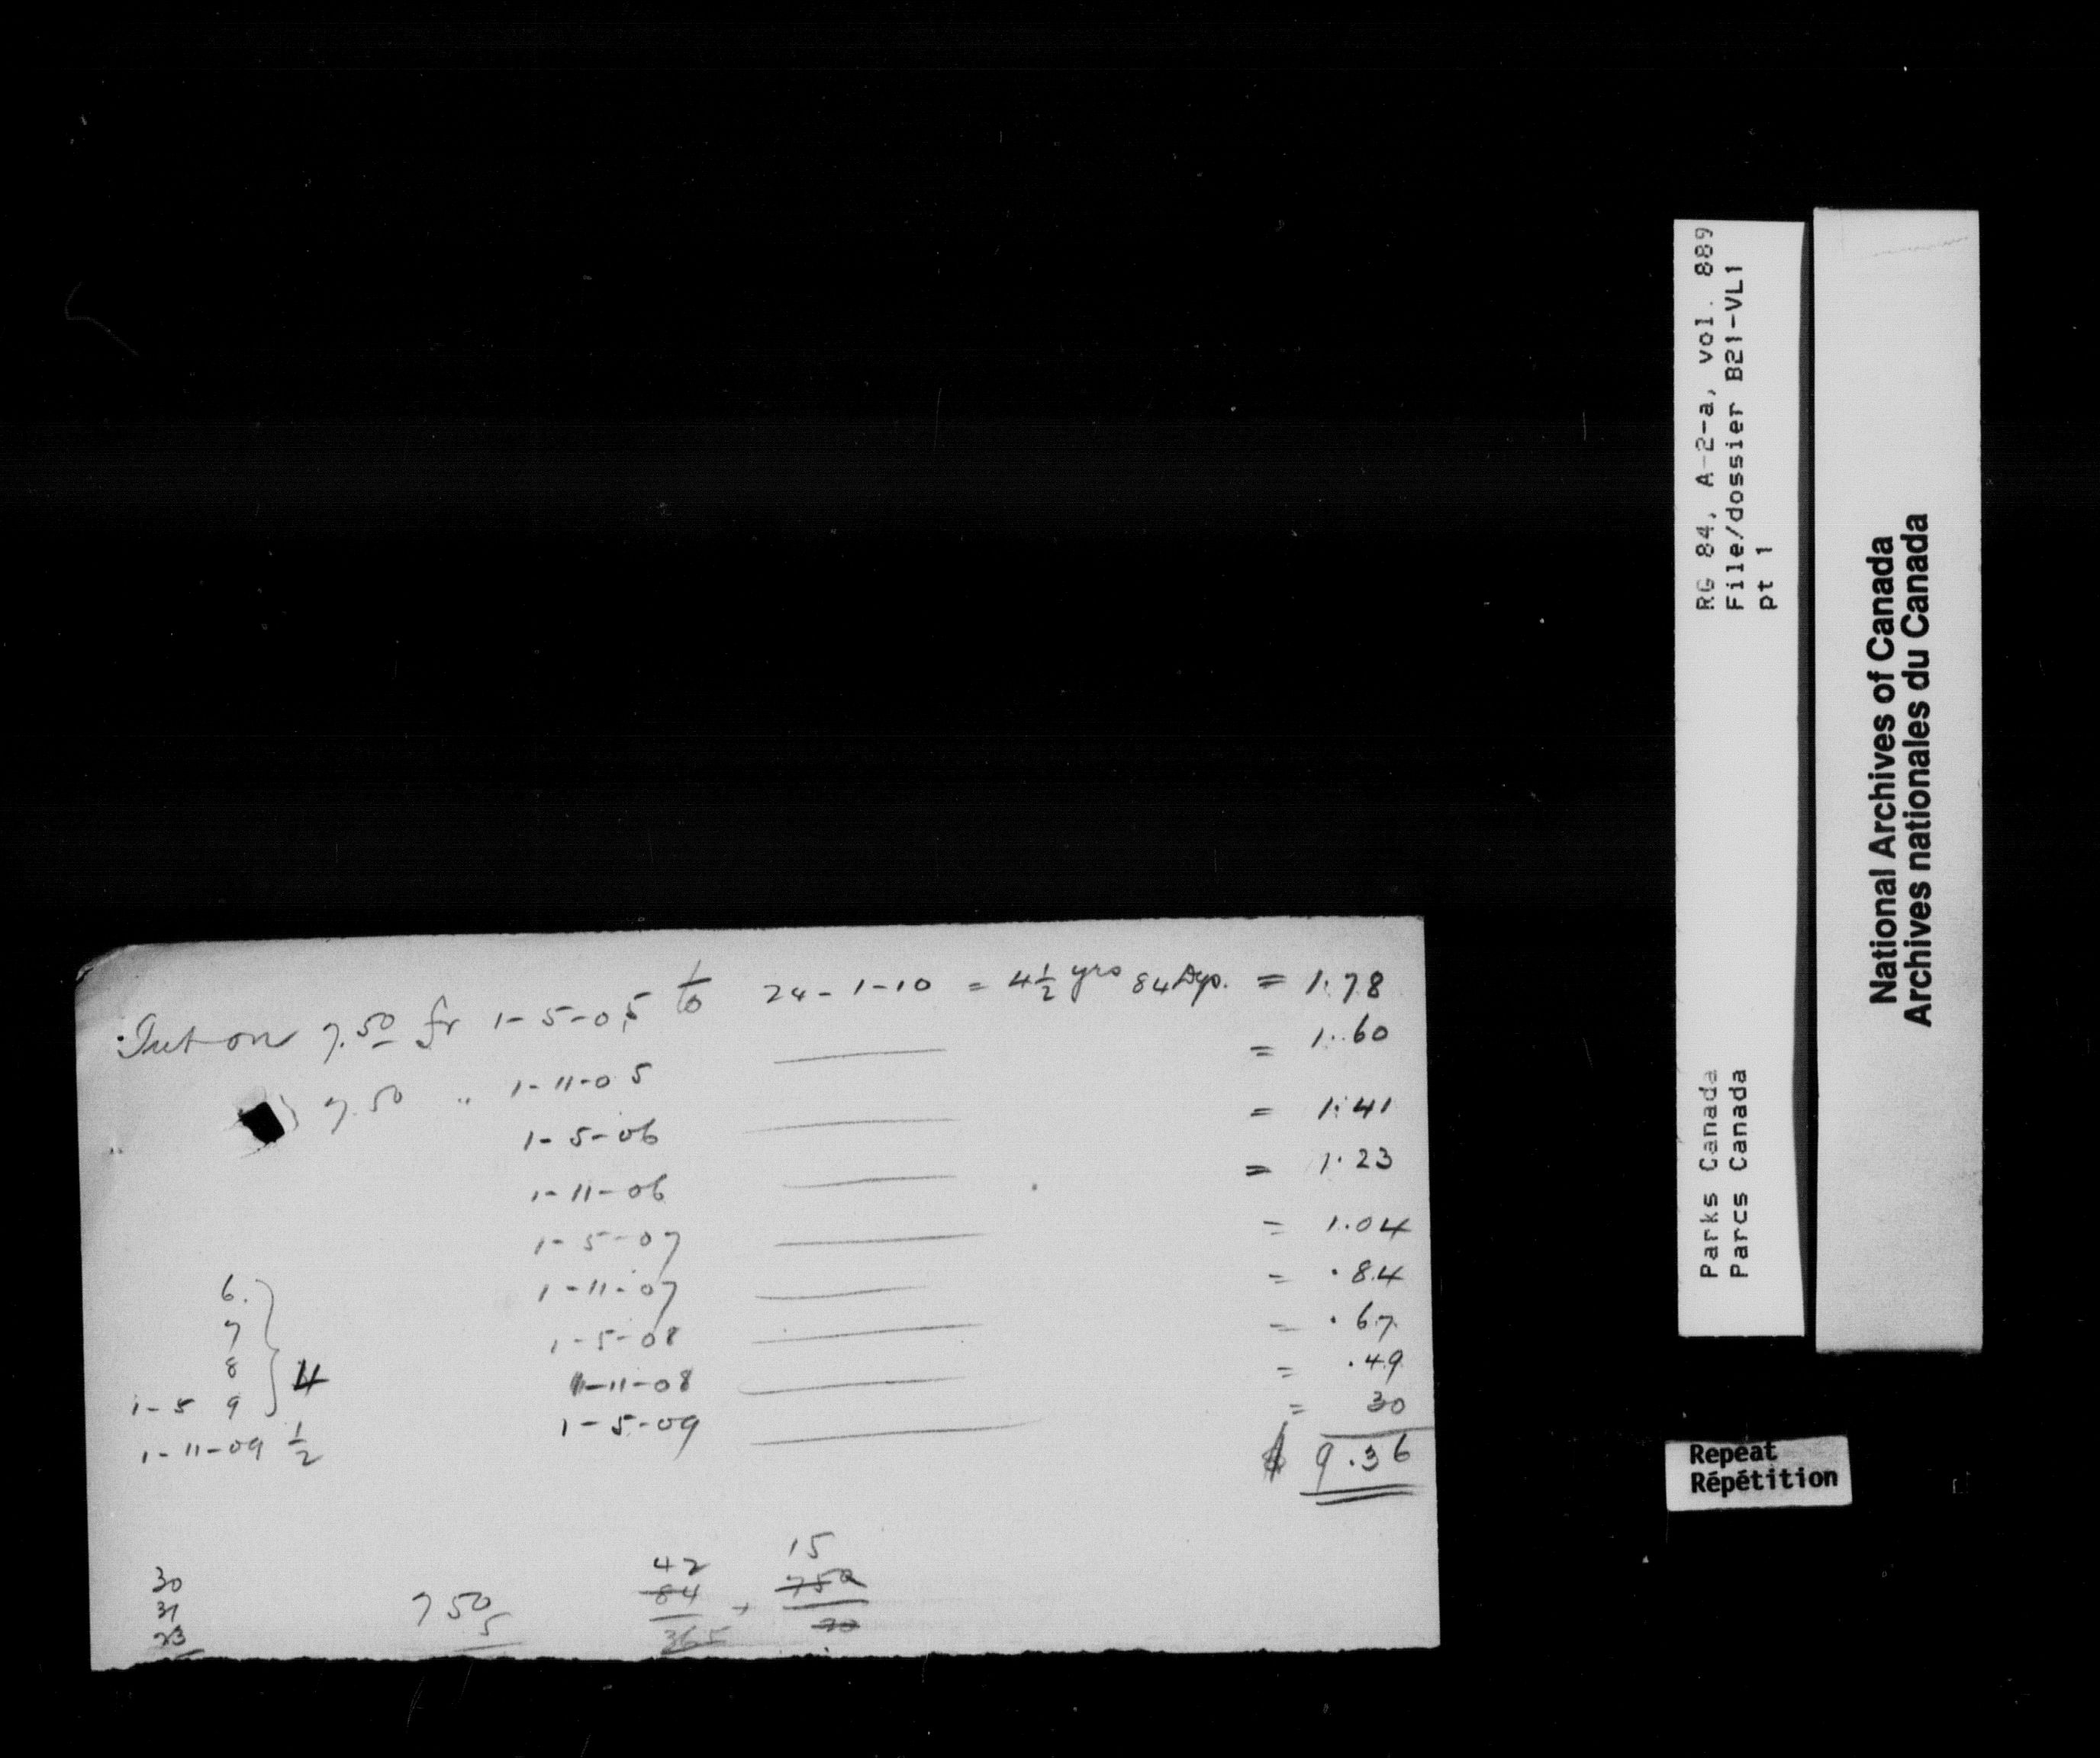 Int on 7.50 fr 1-5-05 to 24-1-10 = 4½ yrs 84 Dys. = 1.78
7.50 " 1-11-05 ——— = 1.60
" 1-5-06 ——— = 1.41
1-11-06 ——— = 1.23
1-5-07 ——— = 1.04
1-11-07 ——— = .84
1-5-08 ——— = .67
1-11-08 ——— = .49
1-5-09 ——— = 30
$ 9.36
6.
7
8
1-5 9 } 4
1-11-09 ½
30
31
23
750
5
42
84
365
15
750
20
RG 84, A-2-a, vol. 889
File/dossier B21-VL1
pt 1
Parks Canada
Parcs Canada
National Archives of Canada
Archives nationales du Canada
Repeat
Répétition